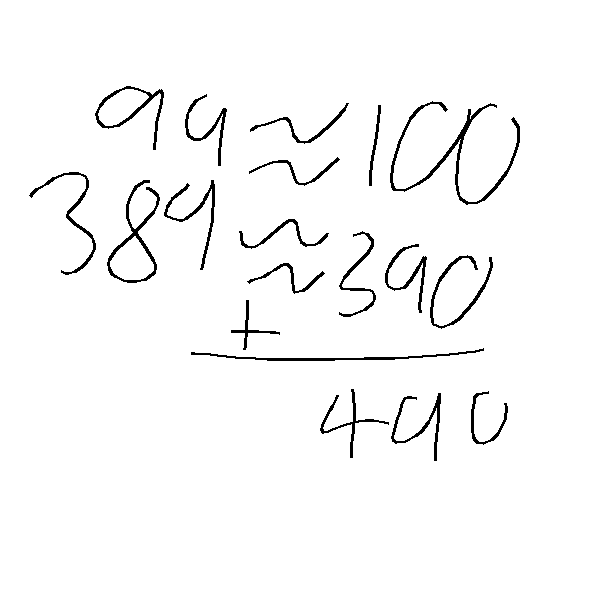 99 ≈ 100
389 ≈ 390
+
490